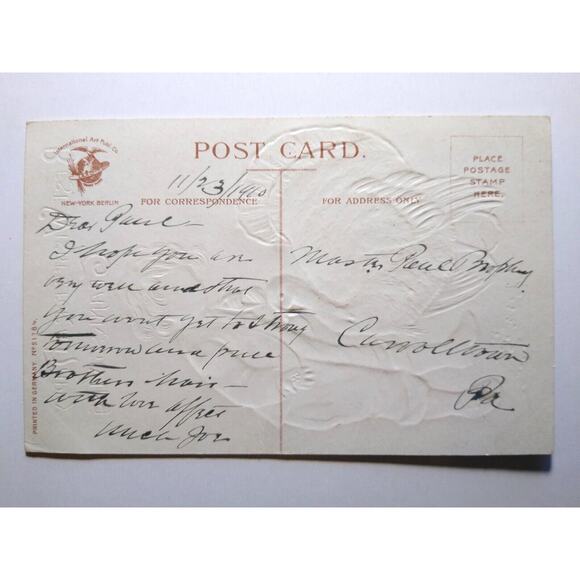 International Art Publ. Co.
NEW-YORK BERLIN
POST CARD.
PLACE
POSTAGE
STAMP
HERE.
11/23/1910
FOR CORRESPONDENCE
FOR ADDRESS ONLY
Dear Paul —
I hope you are
very well and that
you wont get to strong
tomorrow and pull
Brothers hair —
with love
Uncle Joe
Master Paul Brophy
Carrolltown
Pa
PRINTED IN GERMANY No 51784.